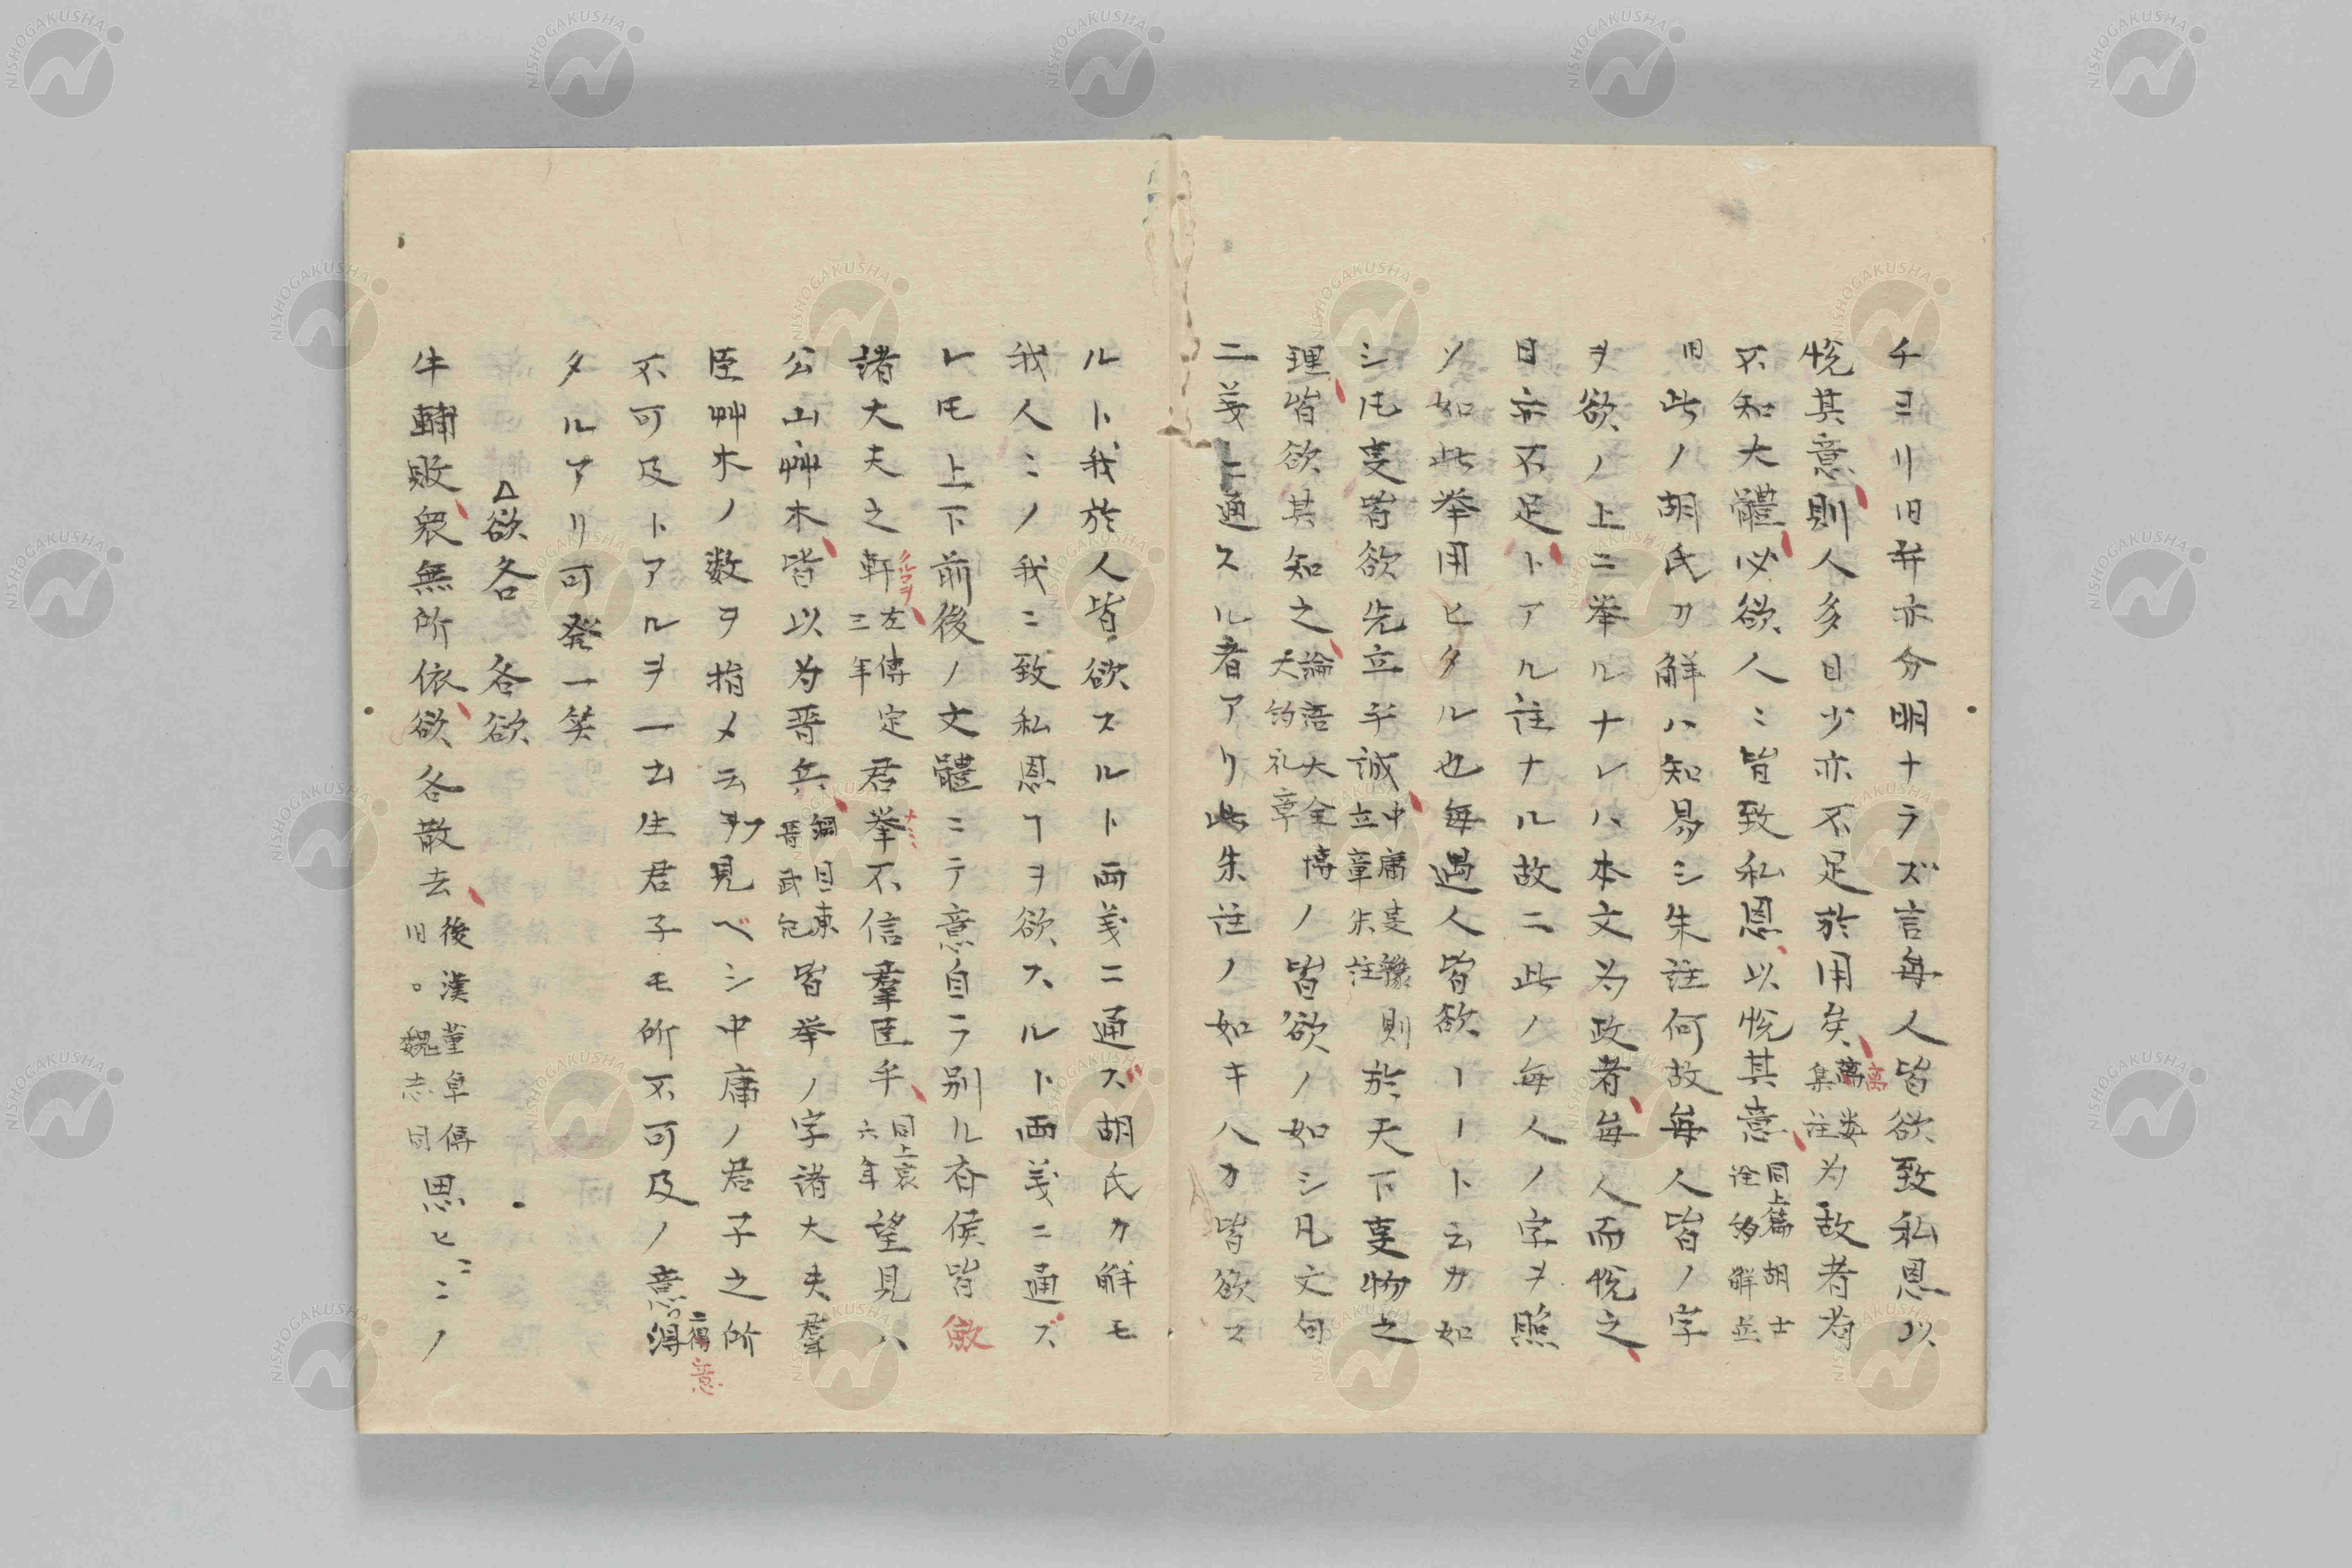 チヨリ旧弁亦分明ナラズ言毎人皆欲致私恩以
悦其意則人多日少亦不足於用矣離婁集註為政者若
不知大體必欲人〻皆致私恩以悦其意同上篇胡士
旧此ノ胡氏カ解ハ知易シ朱註何故毎人皆ノ字
ヲ欲ノ上ニ挙ルナレハ本文為政者毎人而悦之
日亦不足トアル註ナル故ニ此ノ毎人ノ字ヲ照
ソ如此挙用ヒタル也毎遇人皆欲ーートムカ如
シ凡叓皆欲先立乎誠中庸叓豫立章朱註則於天下叓物之
理皆欲其知之論語大全博ノ皆欲ノ如シ凡文句
二義上通スル者アリ此朱註ノ如キ八カ皆欲ス
ルト我於人皆欲スルト両義ニ通ズ胡氏カ解モ
我人ニノ我ニ致私恩ヿヲ欲スルト両義ニ通ズ
レ𪜈上下前後ノ文體ニテ意自ラ別ル侯皆
諸大夫之軒左傳定三年君挙不信羣臣乎同上哀六年望見八
公山艸木皆以為晋兵綱目東晋武紀皆挙ノ字諸大夫羣
臣艸木ノ数ヲ指メ云ヲ見ベシ中庸ノ君子之所
不可及トアルヲ一士生君子モ所不可及ノ意
タルアリ可発一笑
△欲各 各欲
牛輔敗衆無所依欲各散去後漢董卓傳旧。魏志同思ヒ〻ニノ